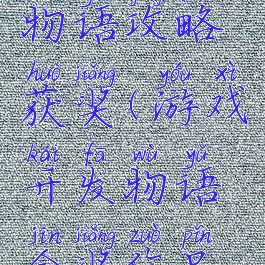 物语攻略
huò jiǎng yóu xì
获奖(游戏
kāi fā wù yǔ
开发物语
jīn jiǎng zuò pǐn
金奖作品